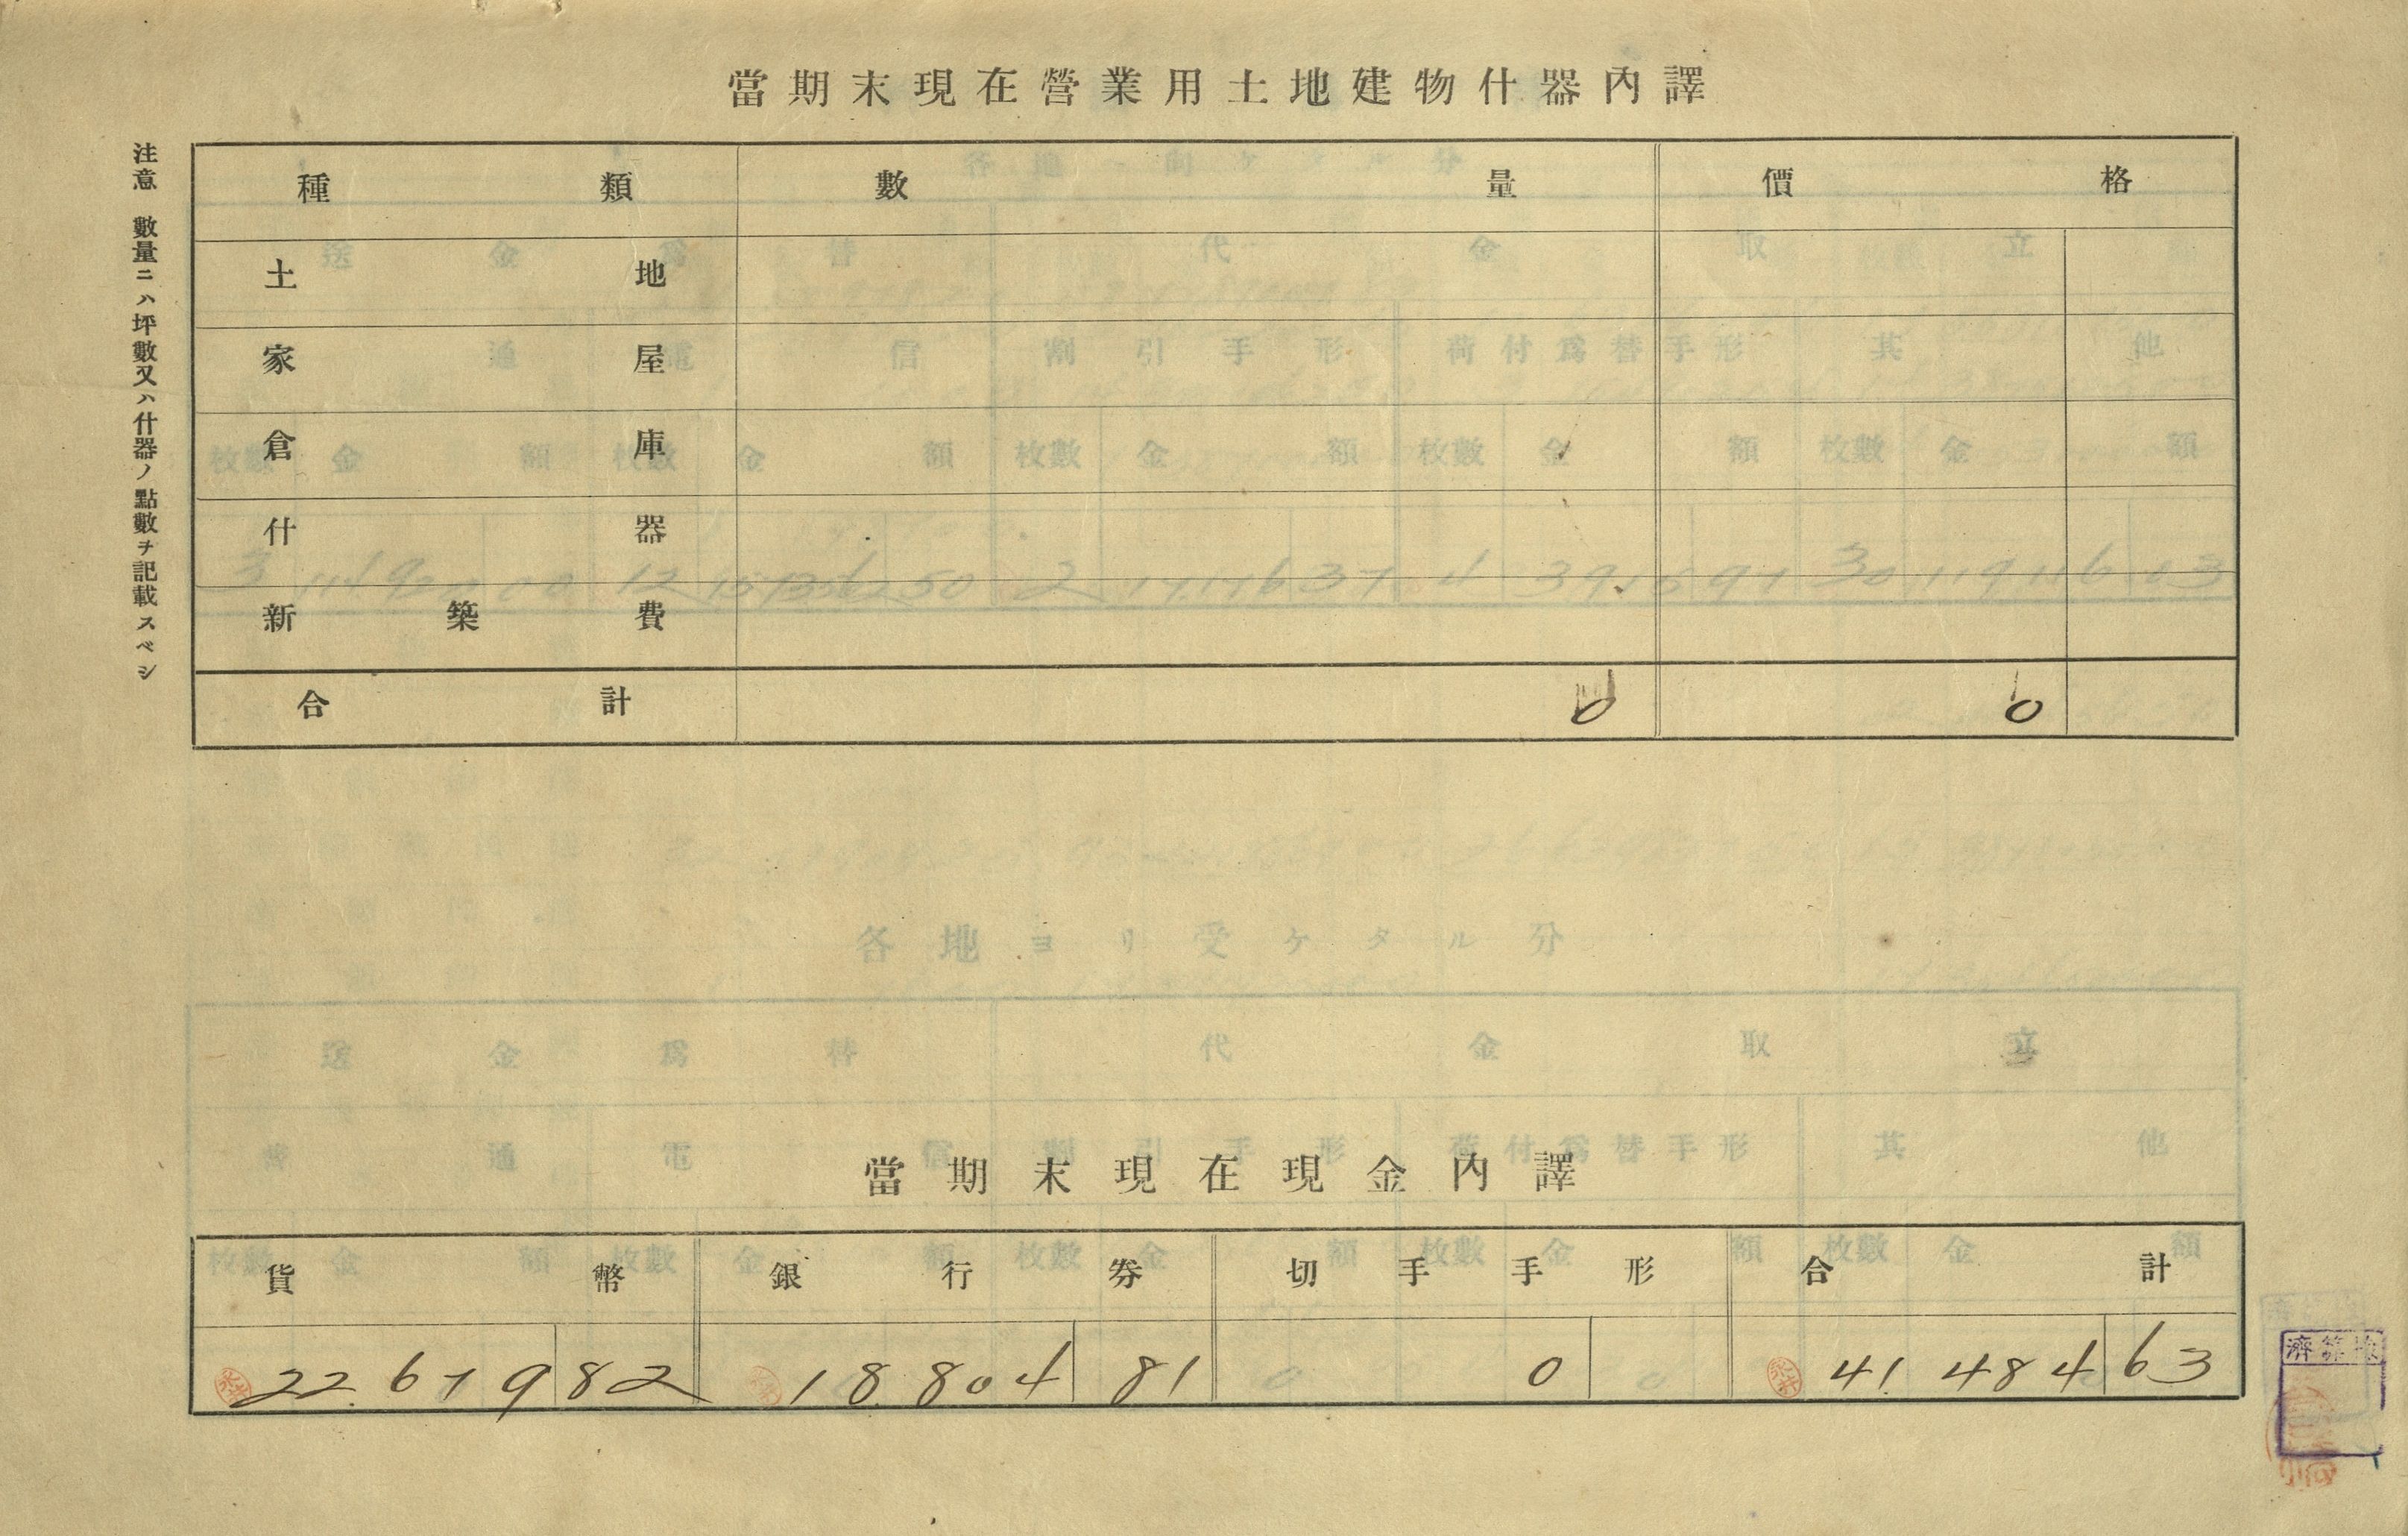 當期末現在營業用土地建物什器內譯
注意 數量ニハ坪數又ハ什器ノ點數ヲ記載スベシ
種類 數量 價格
土地
家屋
倉庫
什器
新築費
合計 0 0
當期末現在現金內譯
貨幣 銀行券 切手手形 合計
22.679 82 18.804 81 0 41.484 63
濟算